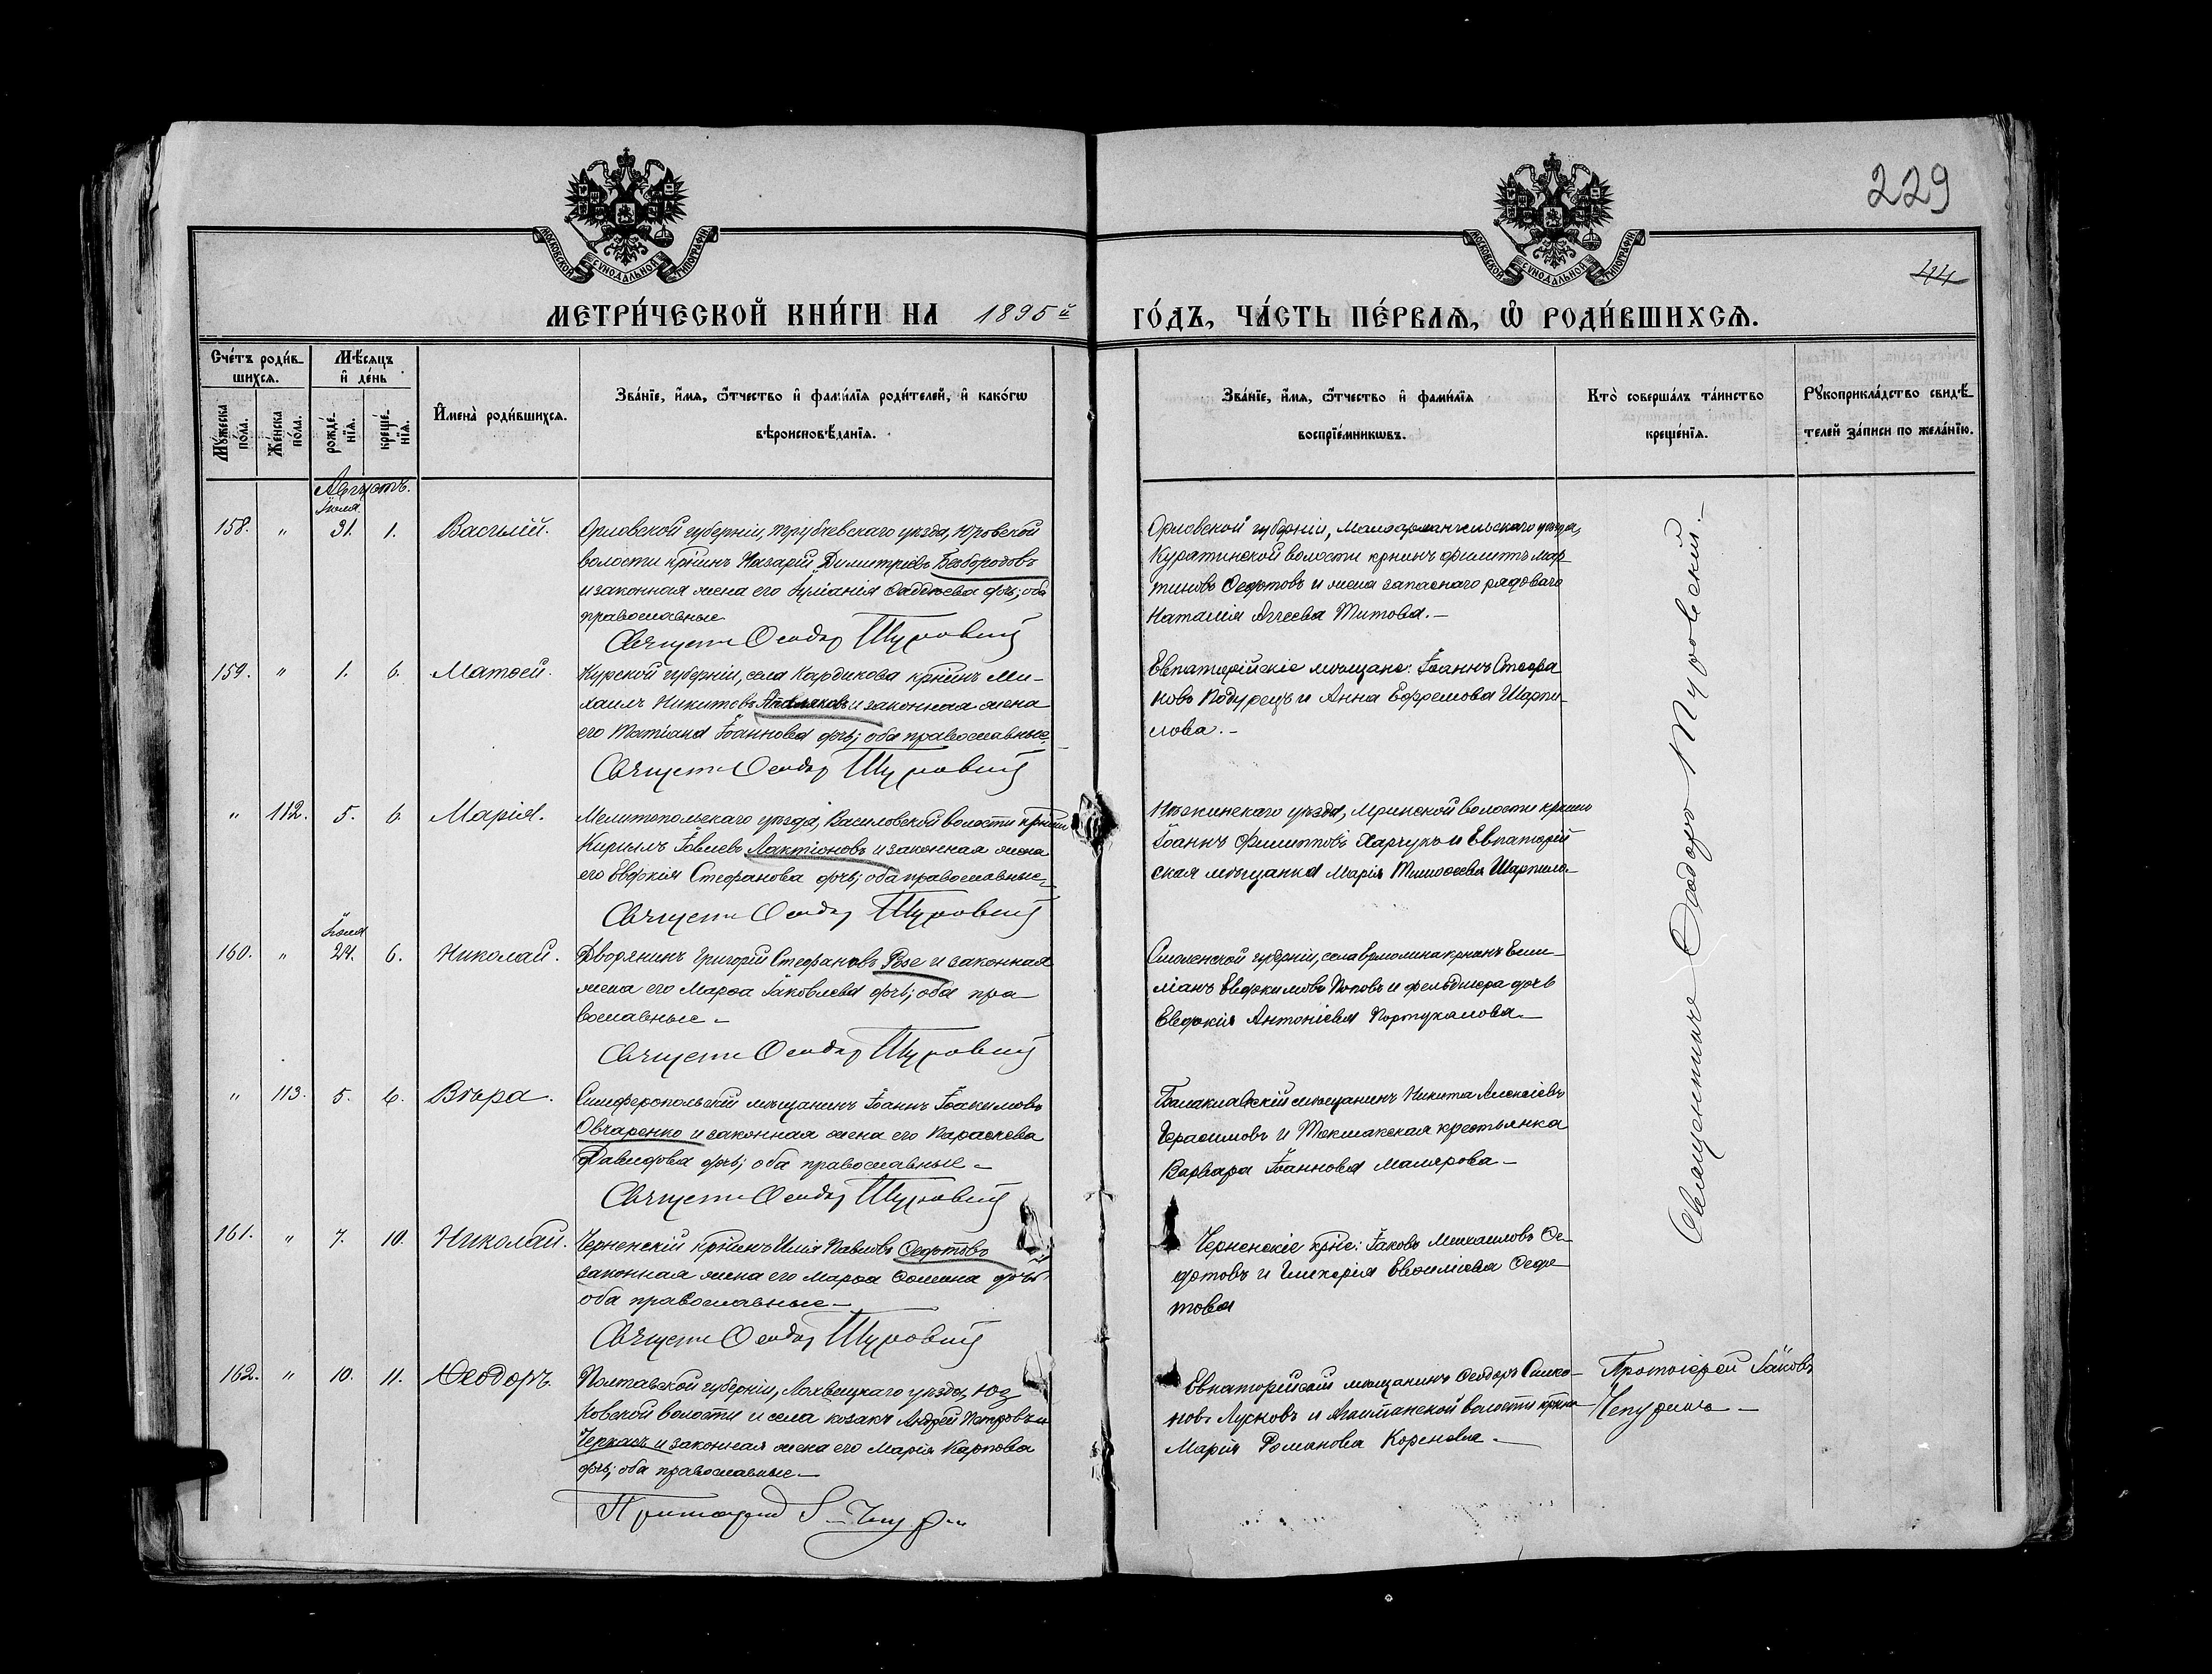 229
44
МОСКОВСКОЙ СѴНОДАЛЬНОЙ ТИПОГРАФІИ
МОСКОВСКОЙ СѴНОДАЛЬНОЙ ТИПОГРАФІИ
МЕТРИ́ЧЕСКОЙ КНИ́ГИ НА 1895й
ГО́ДЪ, ЧА́СТЬ ПЕ́РВАѦ, Ѽ РОДИ́ВШИХСѦ.
Сче́тъ роди́в-
шихсѧ.
Мѣ́сѧцъ
и҆ де́нь
Мꙋ́жеска
по́ла.
Же́нска
по́ла.
рожде́-
нїѧ.
креще́-
нїѧ.
И҆мена̀ роди́вшихсѧ.
Зва́нїе, и҆́мѧ, ѻ҆́тчество и҆ фамі́лїѧ роди́телей, и҆ како́гѡ
вѣроисповѣ́данїѧ.
Зва́нїе, и҆́мѧ, ѻ҆́тчество и҆ фамі́лїѧ
воспрїе́мникѡвъ.
Кто̀ соверша́лъ та́инство
креще́нїѧ.
Рꙋкоприкла́дство свидѣ́-
телей за́писи по жела́нїю.
Августъ.
Іюля
158. " 31. 1. Василій.
Орловской губерніи, Трубчевскаго уѣзда, Юровской
волости крнинъ Назарій Димитріевъ Безбородовъ
и законная жена его Іуліанія Ѳаддеева дчь; оба
православные
Священ Ѳеодор Туровскій
Орловской губерніи, Малоархангельскаго уѣзда,
Куратинской волости крнинъ Филиппъ Мар-
тиновъ Ѳедотовъ и жена запаснаго рядоваго
Наталія Аггеева Титова.—
159. " 1. 6. Матѳей.
Курской губерніи, села Кардикова крнинъ Ми-
хаилъ Никитовъ и законная жена
его Татіана Іоаннова дчь; оба православные.
Священ Ѳеодор Туровскій
Евпаторійскіе мѣщане: Іоаннъ Стефа
новъ Подурецъ и Анна Ефремова Шарпи-
лова.—
" 112. 5. 6. Марія.
Мелитопольскаго уѣзда, Василовской волости крнинъ
Кириллъ Іовлевъ Лактіоновъ и законная жена
его Евдокія Стефанова дчь; оба православные.—
Священ Ѳеодор Туровскій
Нѣжинскаго уѣзда, Мринской волости крнинъ
Іоаннъ Филипповъ Харчукъ и Евпаторій
ская мѣщанка Марія Тимоѳеева Шарпило-
Іюля
160. " 24. 6. Николай.
Дворянинъ Григорій Стефановъ Розе и законная
жена его Марѳа Іаковлева дчь; оба пра-
вославные—
Священ Ѳеодор Туровскій
Смоленской губерніи, села Ермолина крнинъ Еми-
ліанъ Евдокимовъ Поповъ и фельдшера дочь
Евдокія Антоніева Португалова.—
" 113. 5. 6. Вѣра.
Симферопольскій мѣщанинъ Іоаннъ Іоакимовъ
Овчаренко и законная жена его Параскева
Давидова дчь; оба православные—
Священ Ѳеодор Туровскій
Балаклавскій мѣщанинъ Никита Алексіевъ
Герасимовъ и Токмакская крестьянка
Варвара Іоаннова Малярова—
161. " 7. 10. Николай.
Черненскій крнинъ Илія Павловъ Ѳедотовъ
законная жена его Марѳа Ѳомина дочь
оба православные—
Священ Ѳеодор Туровскій
Черненскіе крне: Іаковъ Михаиловъ Ѳе-
дотовъ и Гликерія Евѳиміева Ѳедо-
това
162. " 10. 11. Ѳеодоръ.
Полтавской губерніи, Лохвицкаго уѣзда, Юз
ковской волости и села козакъ Андрей Петровъ
Черкасъ и законная жена его Марія Карпова
дчь; оба православные—
Протоіерей І. Чепурин
Евпаторійскій мѣщанинъ Ѳеодоръ Симо-
новъ Лусновъ и волости крнка
Марія Романова Коренева—
Протоіерей Іаковъ
Чепуринъ—
Священникъ Ѳеодоръ Туровскій.—